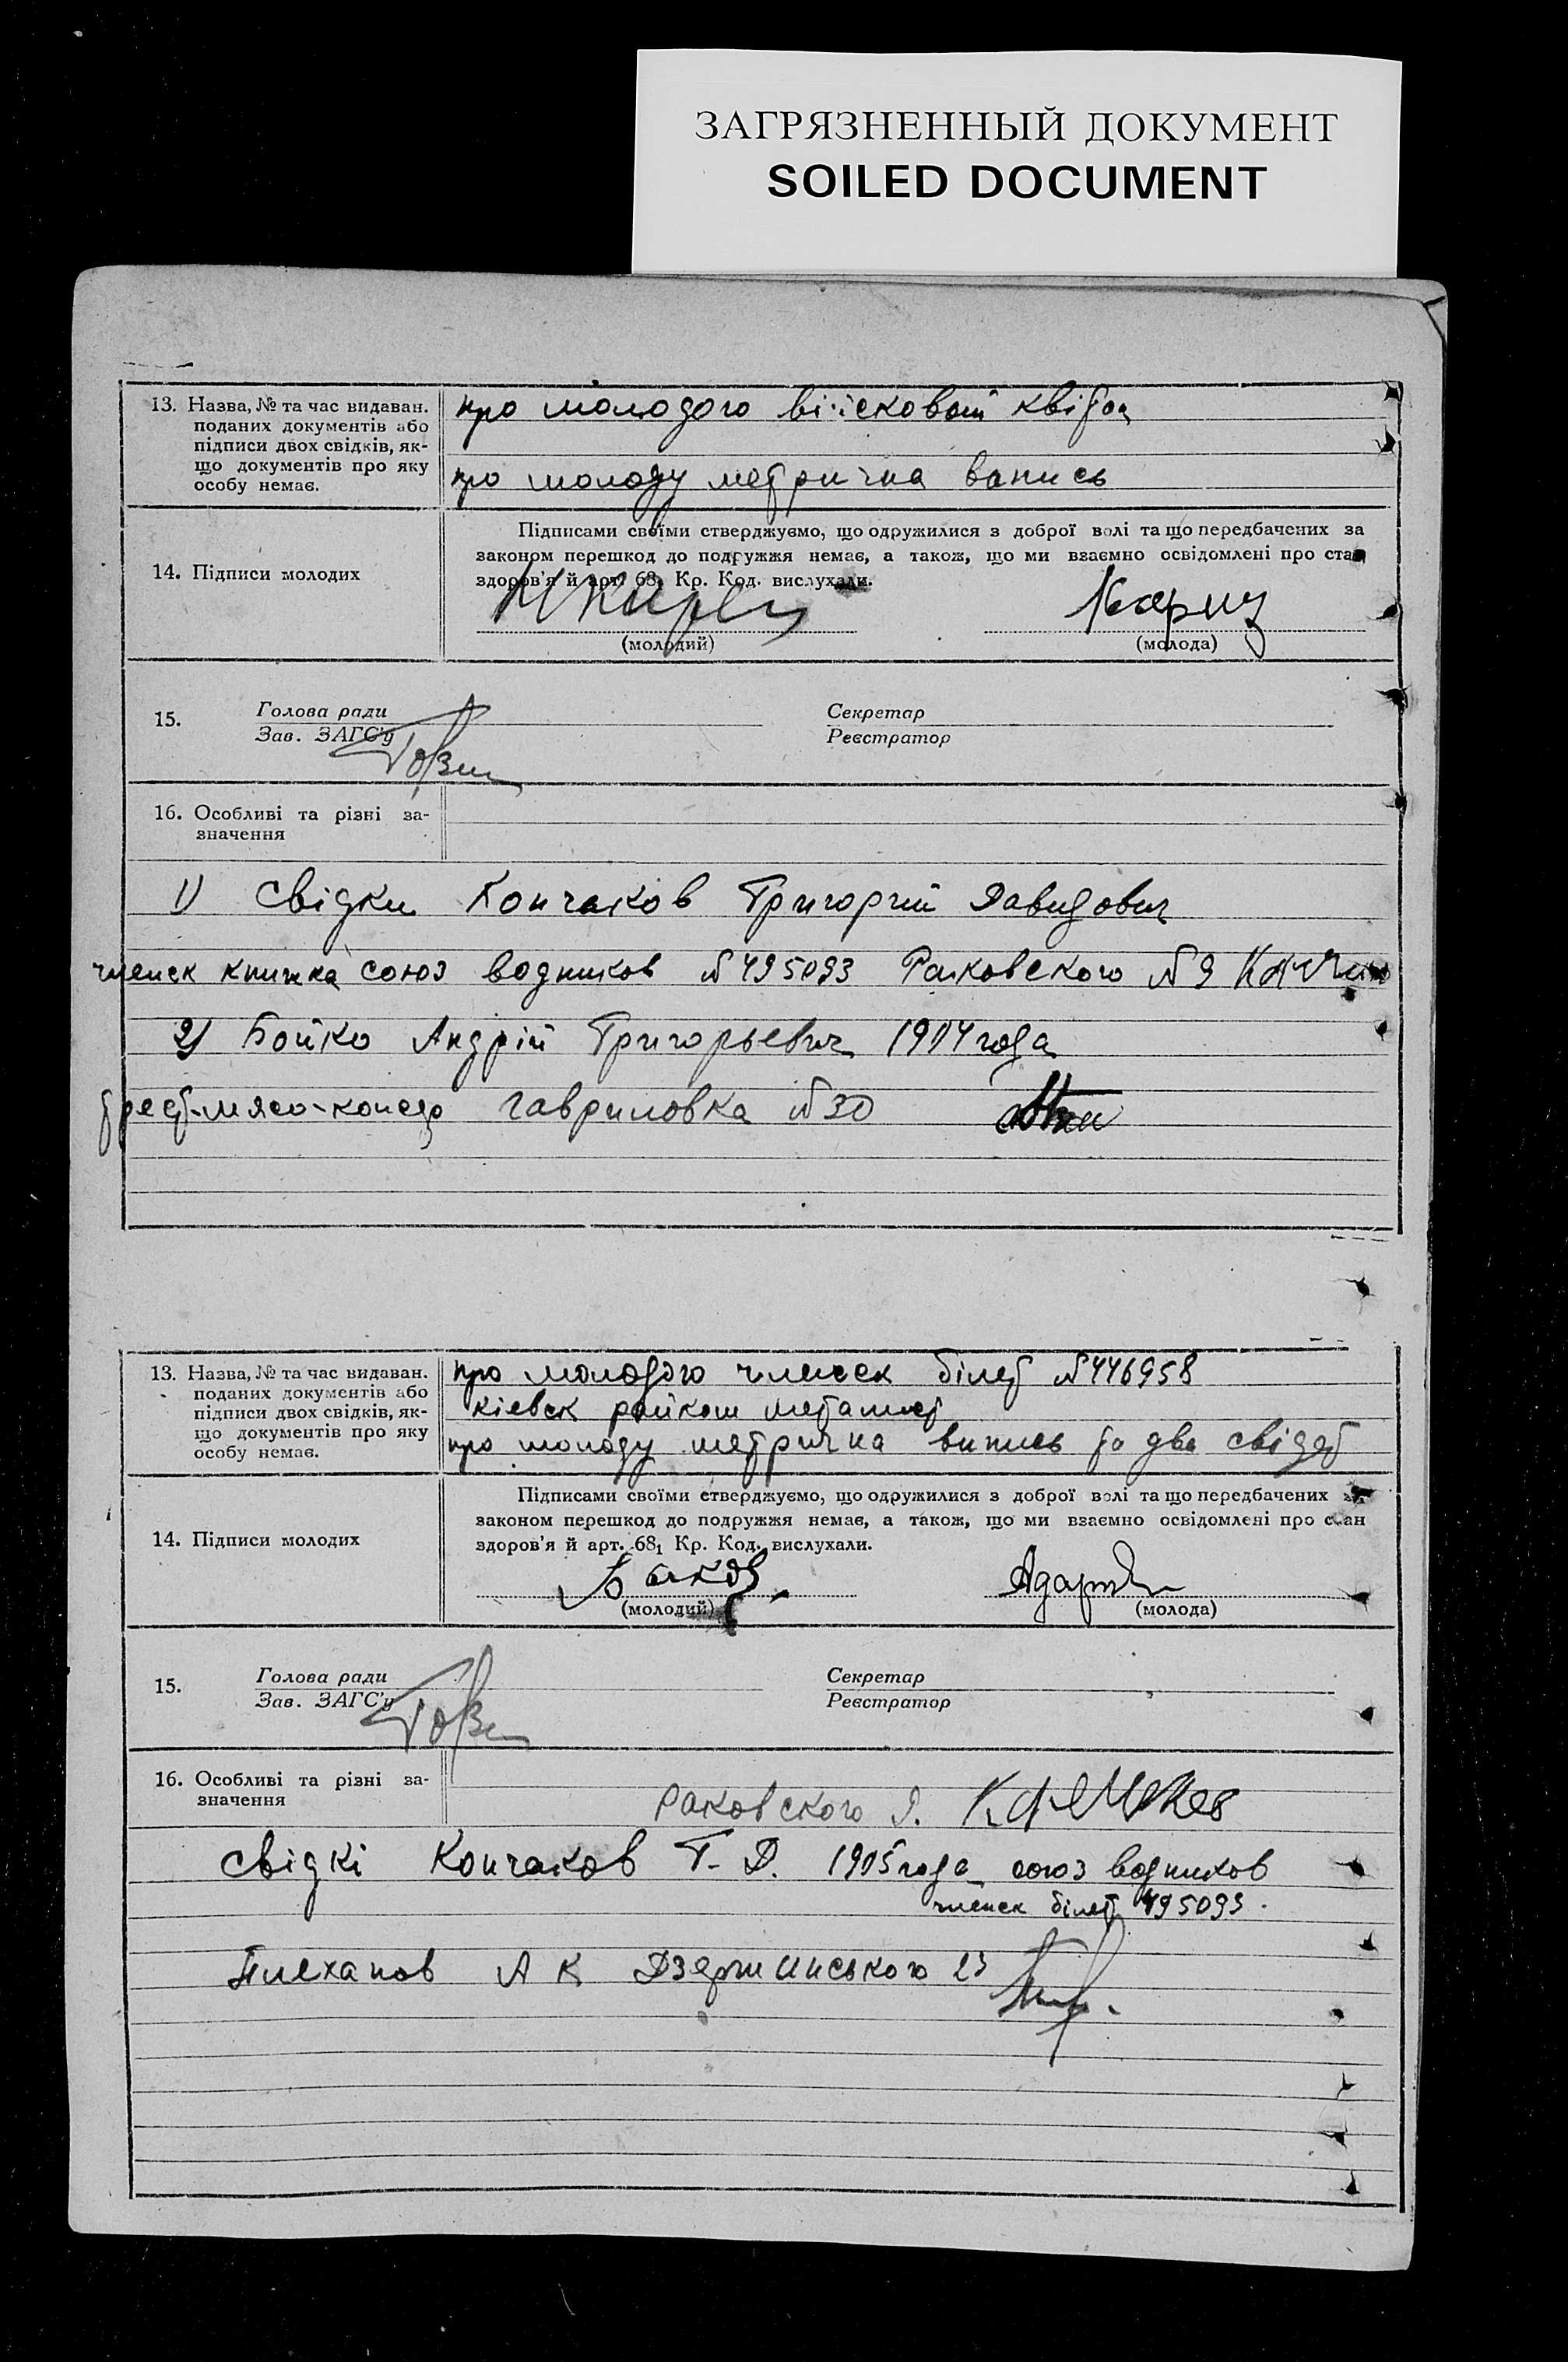 ЗАГРЯЗНЕННЫЙ ДОКУМЕНТ
SOILED DOCUMENT
13. Назва, № та час видаван.
поданих документів або
підписи двох свідків, як-
що документів про яку
особу немає.
про молодого військовой квіток
про молоду метрична вапись
14. Підписи молодих
Підписами своїми стверджуємо, що одружилися з доброї волі та що передбачених за
законом перешкод до подружжя немає, а також, що ми взаємно освідомлені про стан
здоров'я й арт. 68₁ Кр. Код. вислухали.
(молодий) (молода)
15. Голова ради
Зав. ЗАГС'у
Секретар
Реєстратор
16. Особливі та різні за-
значення
1) Свідки Кончаков Григорий Давидович
членск книжка союз водников №495093 Раковского №9
2) Бойко Андрій Григорьевич 1904 года
трест-мясо-консер гавриловка №30
13. Назва, № та час видаван.
поданих документів або
підписи двох свідків, як-
що документів про яку
особу немає.
про молодого членск білет №446958
кіевск райком металист
про молоду метрична випись та два свідет
14. Підписи молодих
Підписами своїми стверджуємо, що одружилися з доброї волі та що передбачених за
законом перешкод до подружжя немає, а також, що ми взаємно освідомлені про стан
здоров'я й арт. 68₁ Кр. Код. вислухали.
(молодий) (молода)
15. Голова ради
Зав. ЗАГС'у
Секретар
Реєстратор
16. Особливі та різні за-
значення
Раковского 9.
свідкі Кончаков Г. Д. 1905 года союз водников
членск білет 495093.
Плеханов А К Дзержинського 23